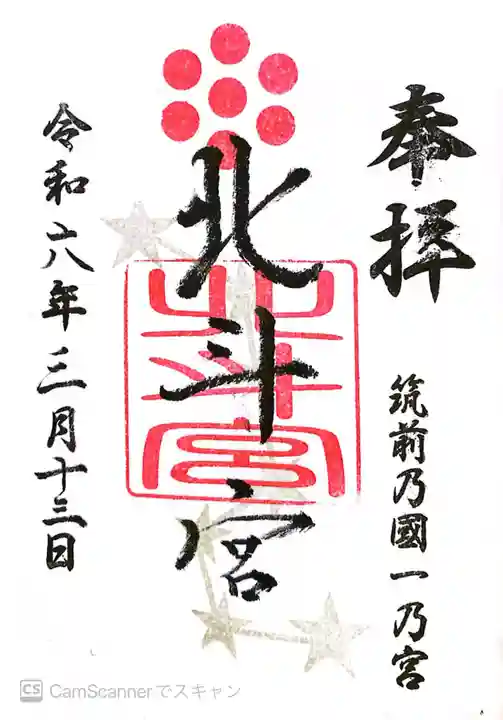 奉拝
筑前乃國一乃宮
北斗宮
北斗宮
令和六年三月十三日
CS CamScannerでスキャン